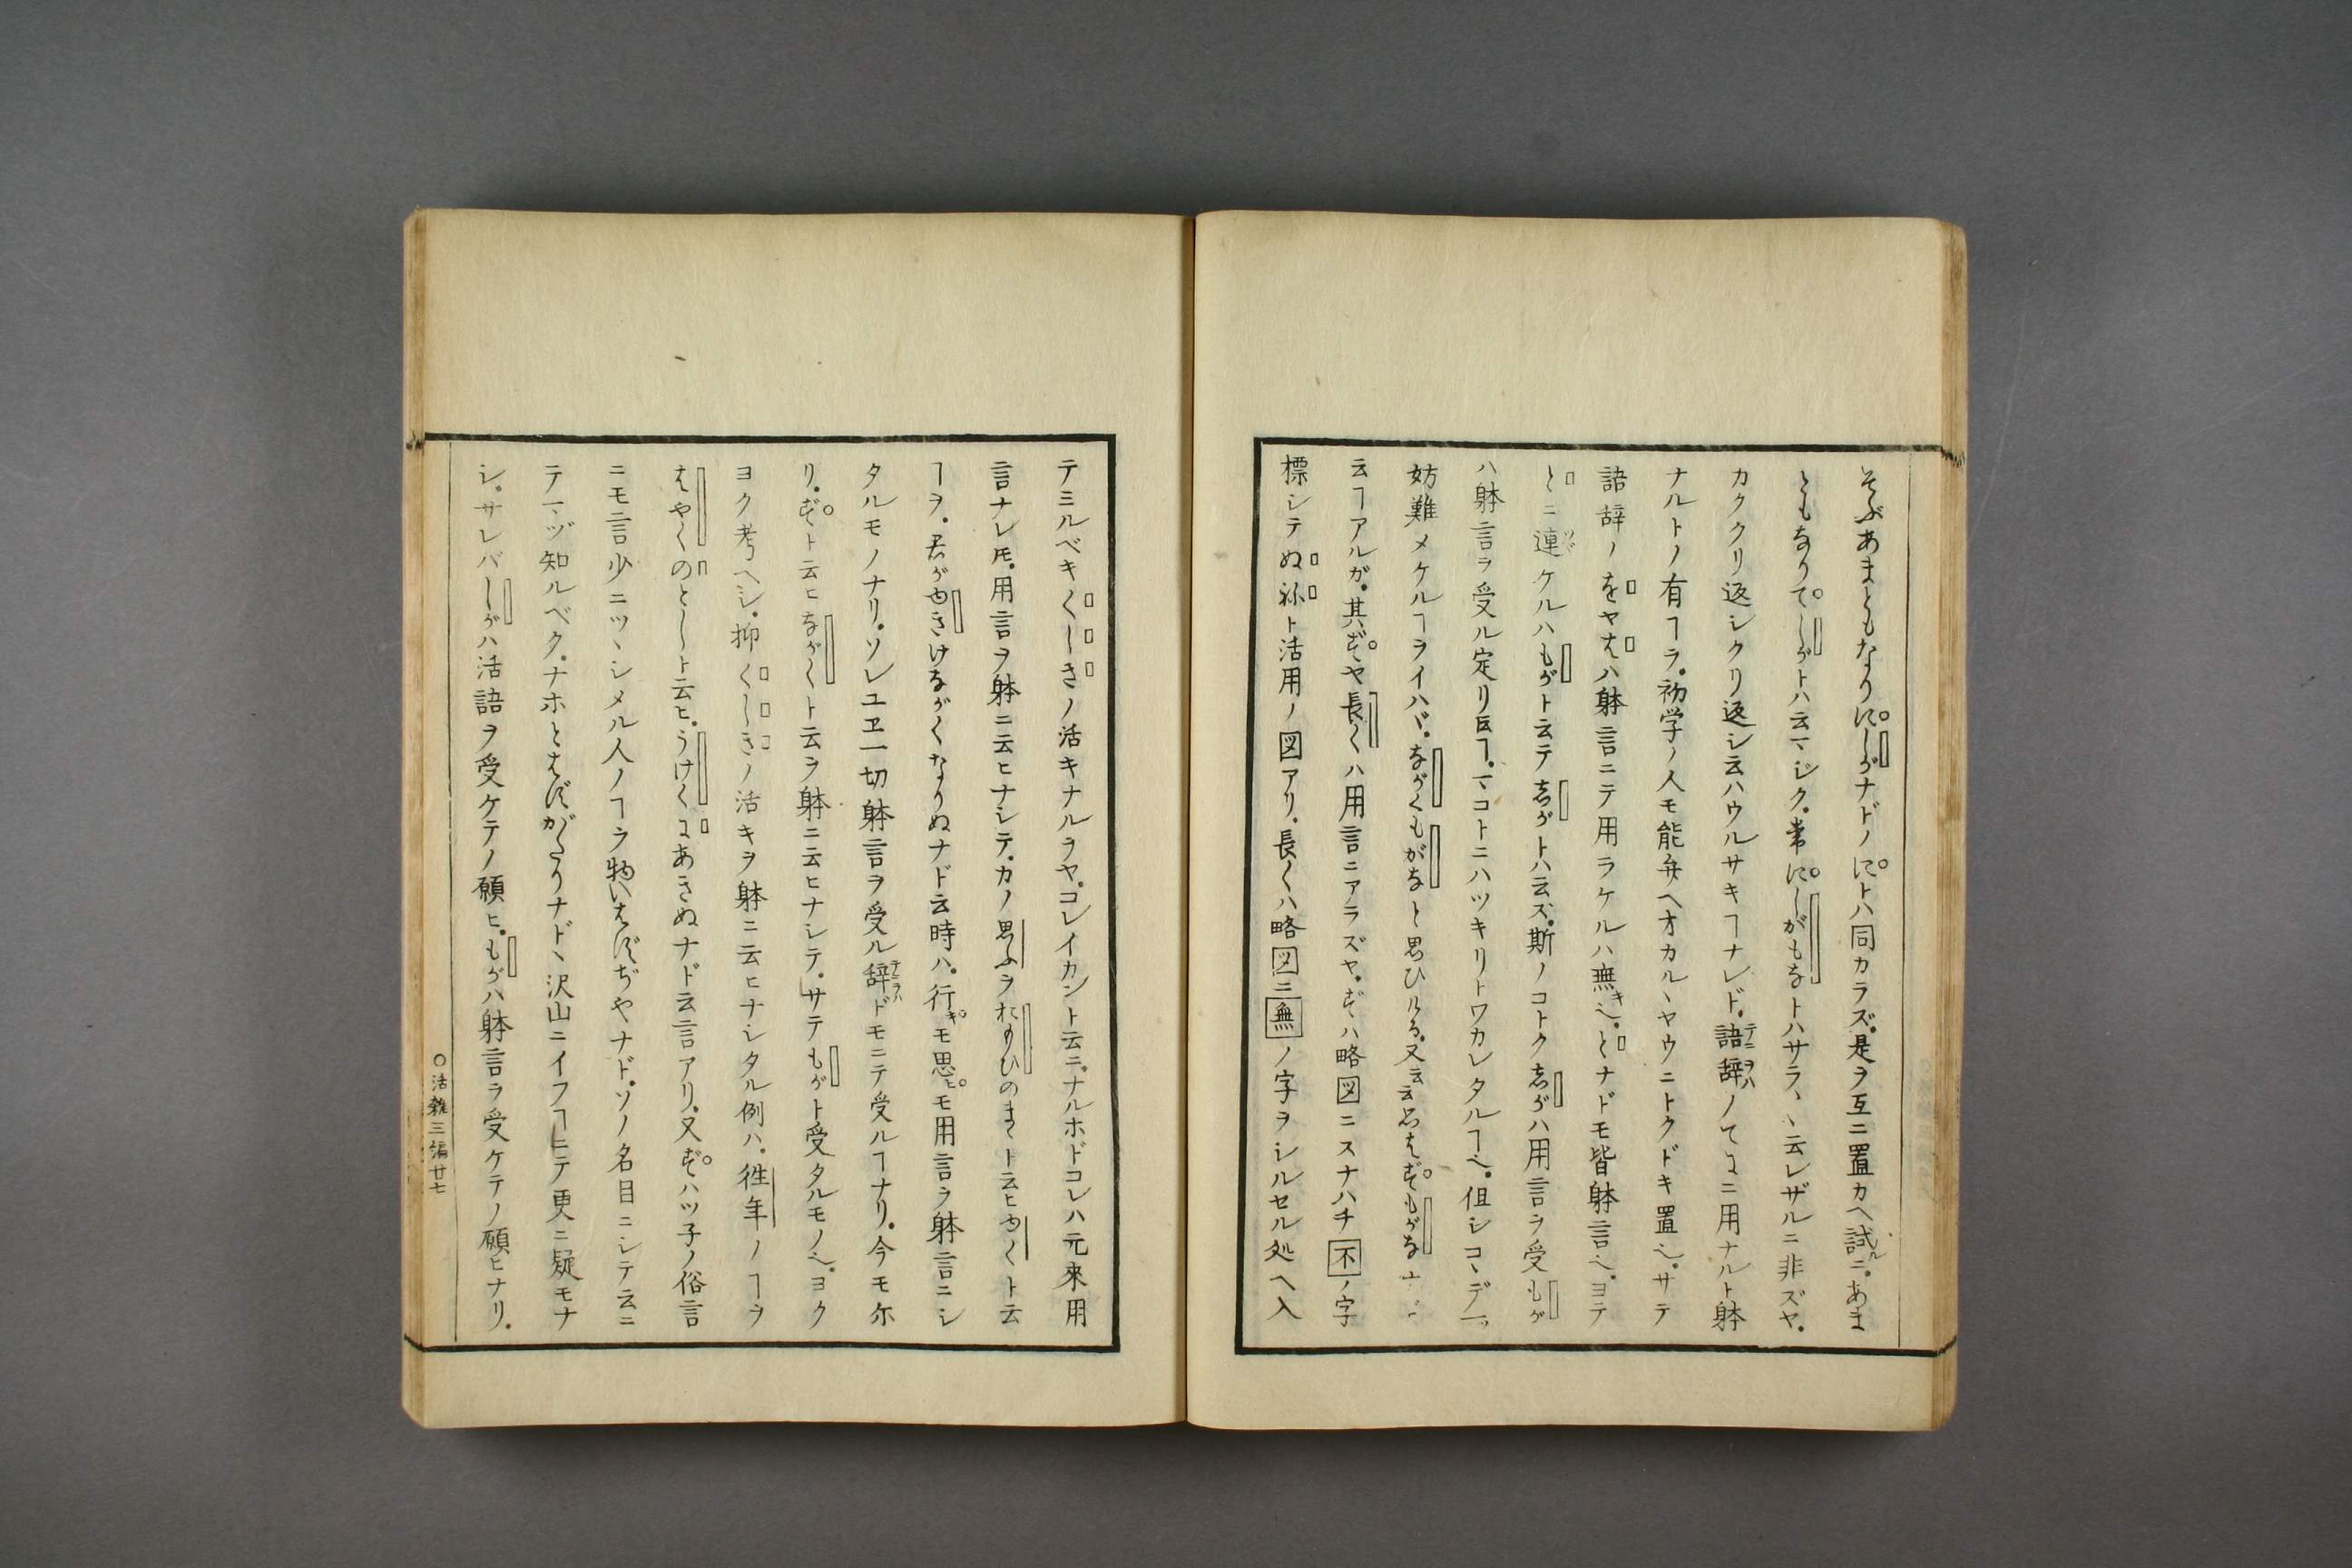 そぶあまともなりにしがナドノにトハ同カラズ是ヲ互ニ置カヘ試ルニ。あま
ともなりてしがトハ云マジク。常にしがもなトハサラヽ云レザルニ非ズヤ。
カククリ返シクリ返シ云ハウルサキヿナレド。語辞ノてにニ用ナルト躰
ナルトノ有ヿヲ。初学ノ人モ能弁ヘオカルヽヤウニトクドキ置也。サテ
語辞ノをヤはハ躰言ニテ用ラケルハ無キ也。とナドモ皆躰言也。ヨテ
とニ連ケルハもがト云テしがトハ云ズ。斯ノコトクしがハ用言ヲ受もが
ハ躰言ヲ受ル定リ
妨難メケルヿヲイハヾ。ながくもがなと思ひ
云ヿアルガ。其ずヤ長くハ用言ニアラズヤ。ずハ略図ニスナハチ不ノ字
標シテぬねト活用ノ図アリ。長くハ略図ニ無ノ字ヲシルセル処ヘ入
テミルベキくしきノ活キナルヲヤ。コレイカント云ニ。ナルホドコレハ元來用
言ナレ𪜈。用言ヲ躰ニ云ヒナシテ。カノ思ふヲおもひのまヽト云ヒゆくト云
ヿヲ。君がゆきけながくなりぬナド云時ハ。行キモ思ヒモ用言ヲ躰言ニシ
タルモノナリ。ソレユヱ一切躰言ヲ受ル辞ドモニテ受ルヿナリ。今モ尓
リ。ずト云ヒながくト云ヲ躰ニ云ヒナシテ。サテもがト受タルモノ也。ヨク
ヨク考ヘシ。抑くしきノ活キヲ躰ニ云ヒナシタル例ハ。徃年ノヿヲ
はやくのとしト云ヒ。うけくにあきぬナド云言アリ。又ずハツ子ノ俗言
ニモ言少ニツヽシメル人ノヿヲ物いはずぢやナド。ソノ名目ニシテ云ニ
テマヅ知ルベク。ナホとはずがたりナドヽ沢山ニイフヿニテ更ニ疑モナ
シ。サレバしがハ活語ヲ受ケテノ願ヒ。もがハ躰言ヲ受ケテノ願ヒナリ。
○活雜三編廿七